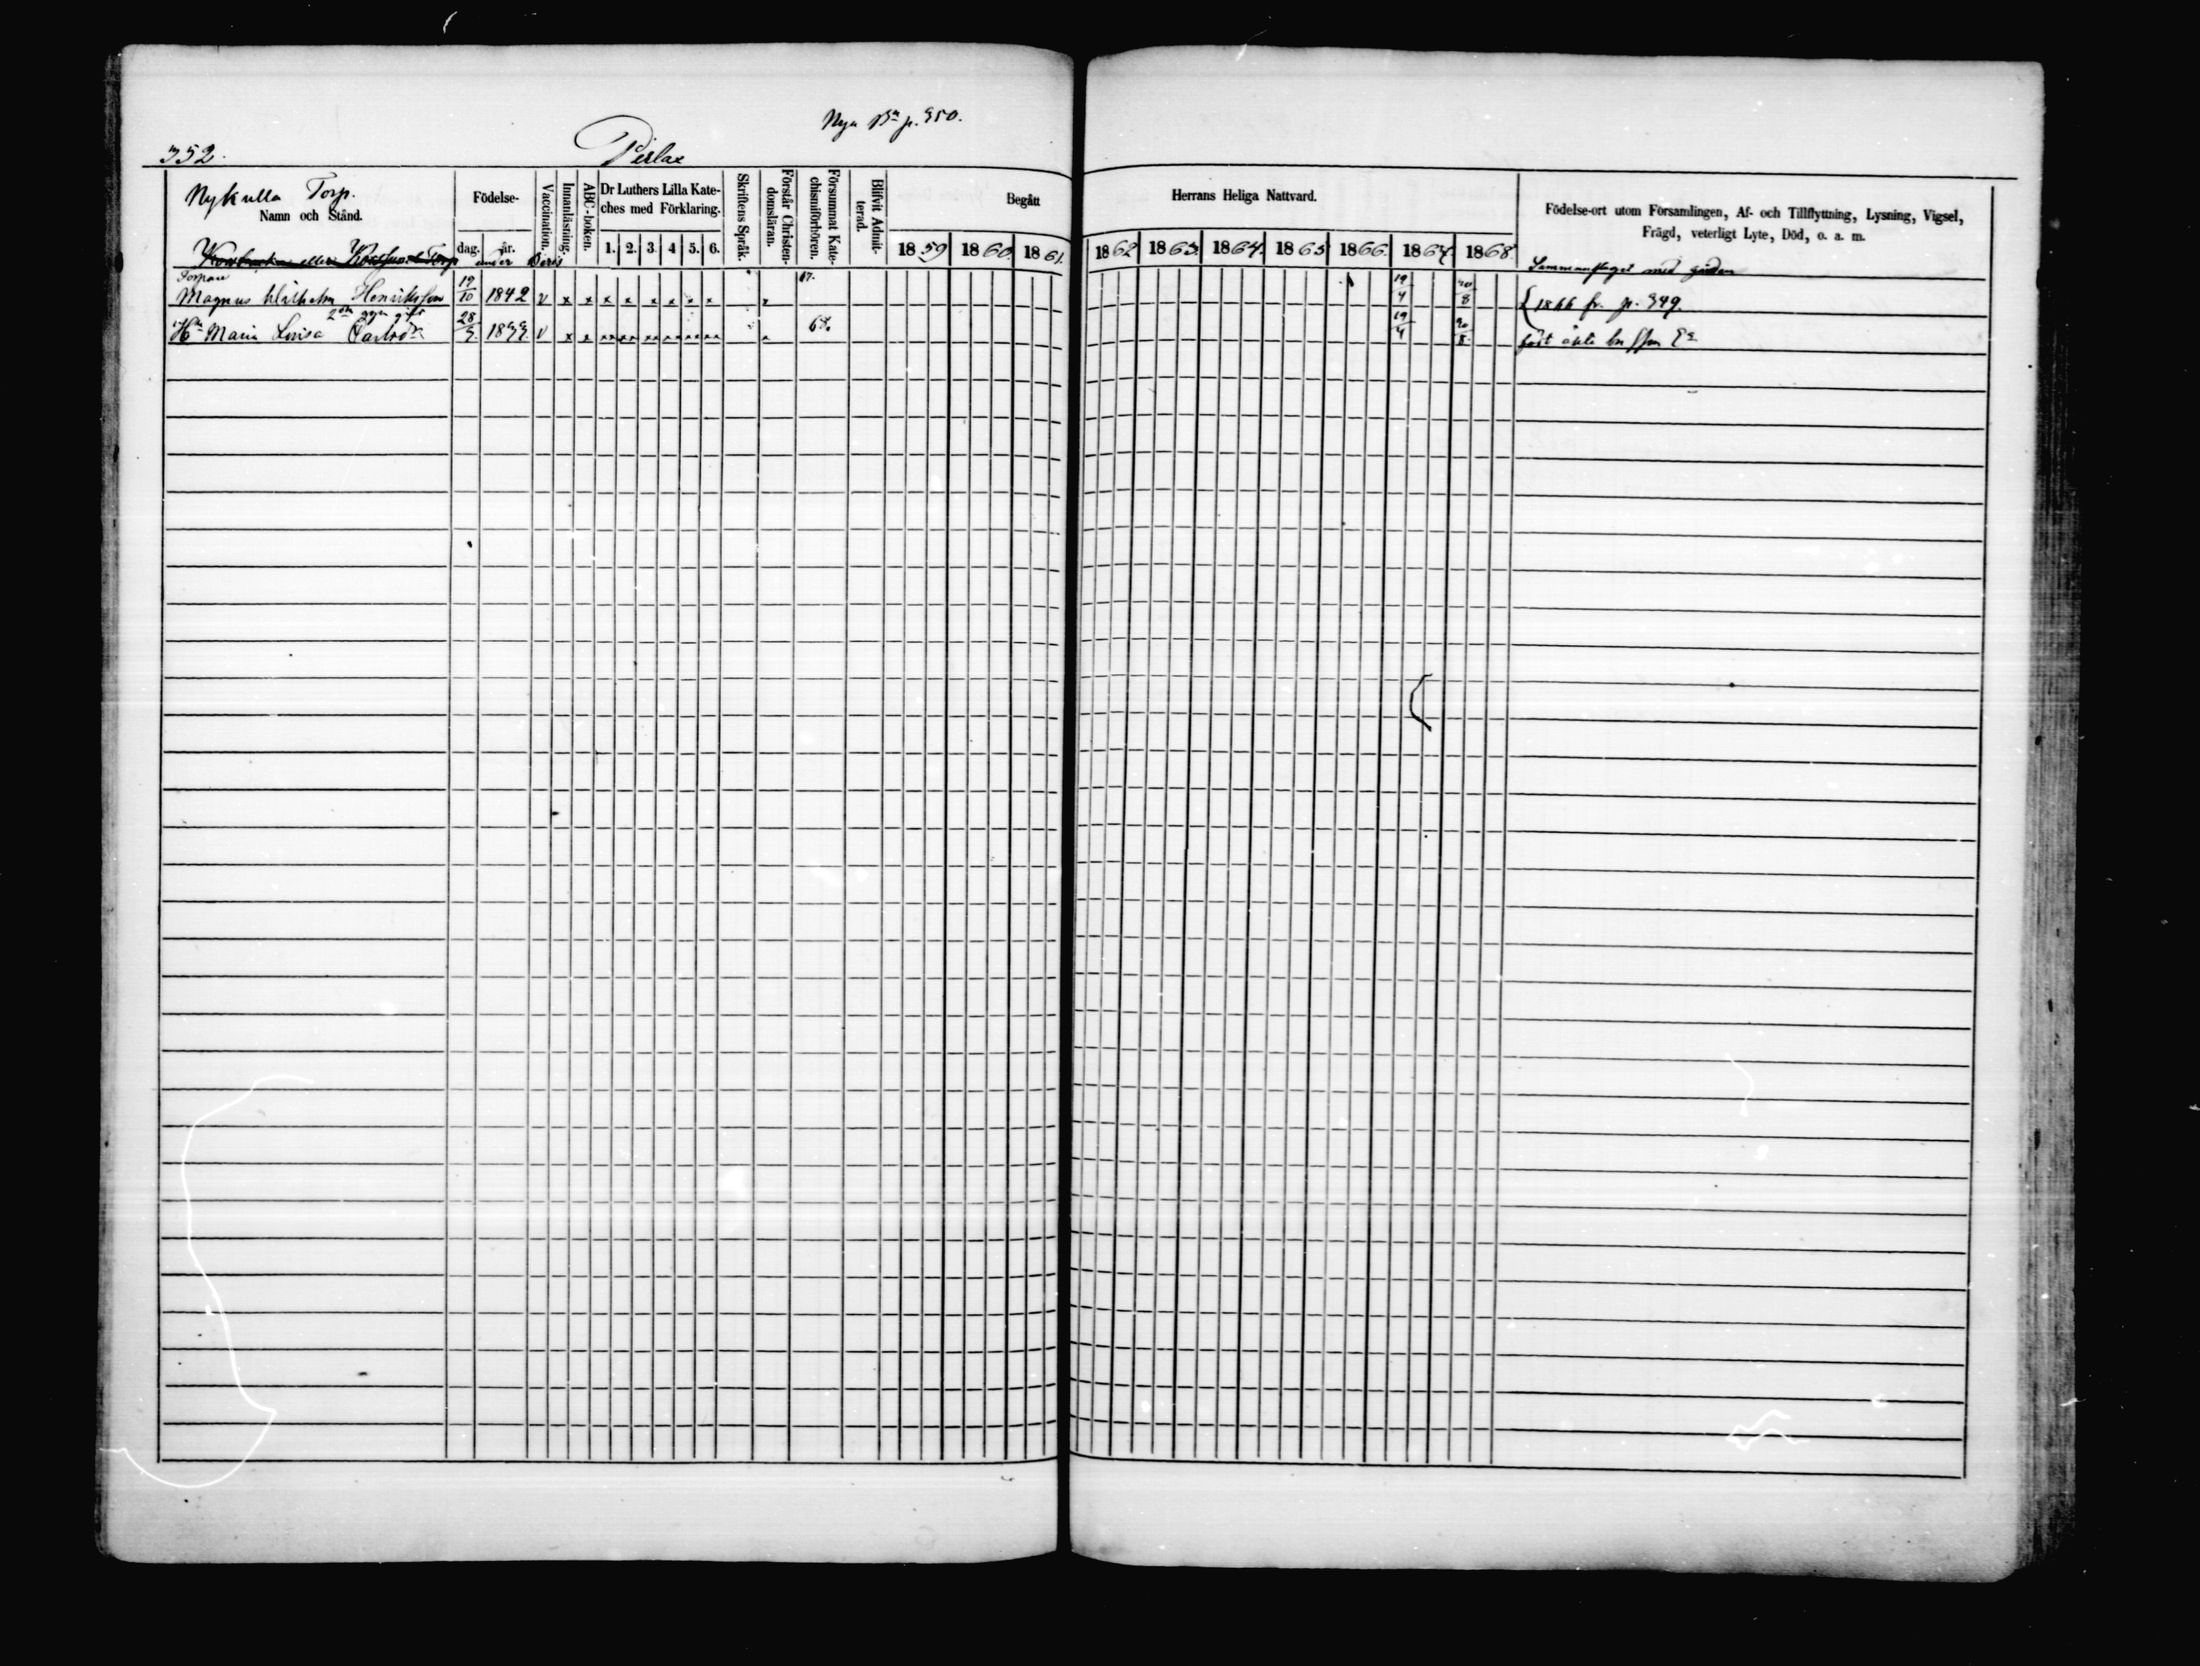 Nya Bn p. 350.
352.
Perlax
Nykulla Torp.
Namn och Stånd.
Födelse-
dag. år.
Vaccination.
Innanläsning.
ABC-boken.
Dr Luthers Lilla Kate-
ches med Förklaring.
1. 2. 3. 4 5. 6.
Skriftens Språk.
Förstår Christen-
domsläran.
Försummat Kate-
chismiförhören.
Blifvit Admit-
terad.
Begått Herrans Heliga Nattvard.
1859 1860 1861. 1862 1863. 1864. 1865 1866. 1867. 1868.
Födelse-ort utom Församlingen, Af- och Tillflyttning, Lysning, Vigsel,
Frägd, veterligt Lyte, Död, o. a. m.
eller Torp under
Sammanslaget med gården
Torpare
Magnus Wilhelm Henriksson 19/10 1842 v x x x x x x x x x 67. 19/4 20/8 1866 fr. p. 349.
2dra ggn gift
Hu Maria Lovisa Carlsdr 28/3. 1833. v x x xx xx xx xx xx xx x 68. 19/4 20/8